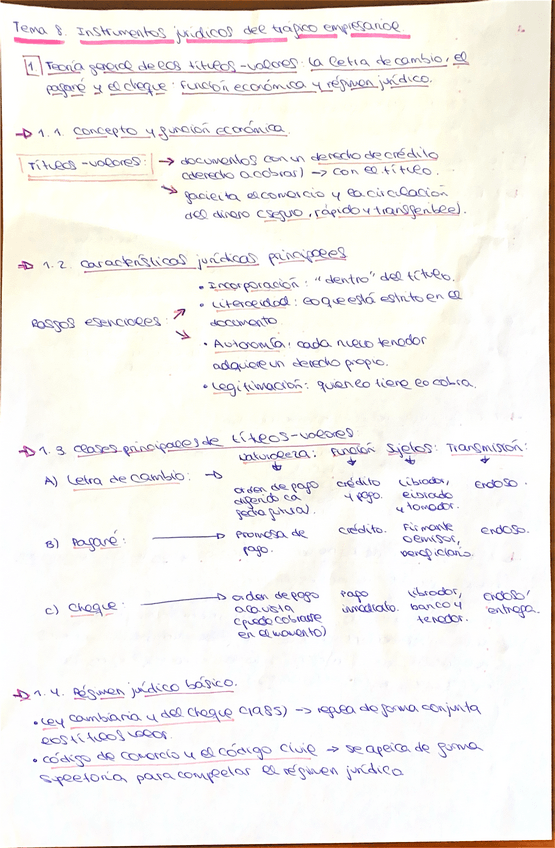 Tema 8. Instrumentos jurídicos del tráfico empresarial
1 Teoría general de los títulos-valores: la letra de cambio, el
pagaré y el cheque: Función económica y régimen jurídico.
→ 1.1. Concepto y función económica.
Títulos-valores → documentos con un derecho de crédito
(derecho a cobrar) → con el título.
→ facilita el comercio y la circulación
del dinero (seguro, rápido y transferible).
→ 1.2. Características jurídicas principales
• Incorporación: "dentro" del título.
• Literalidad: lo que está escrito en el
Rasgos esenciales: documento.
• Autonomía: cada nuevo tenedor
adquiere un derecho propio.
• Legitimación: quien lo tiene lo cobra.
→ 1.3 Clases principales de títulos-valores
Naturaleza: Función Sujetos: Transmisión:
A) Letra de cambio: → orden de pago crédito Librador, endoso.
diferido (a y pago. librado
fecha futura). y tomador.
B) Pagaré: → promesa de crédito. Firmante endoso.
pago. o emisor,
beneficiario.
C) Cheque: → orden de pago pago librador, endoso/
a la vista inmediato. banco y entrega.
(puedo cobrarse tenedor.
en el momento)
→ 1.4. Régimen jurídico básico.
• Ley cambiaria y del cheque (1985) → regula de forma conjunta
los títulos valor.
• código de comercio y el código civil → se aplica de forma
supletoria para completar el régimen jurídico